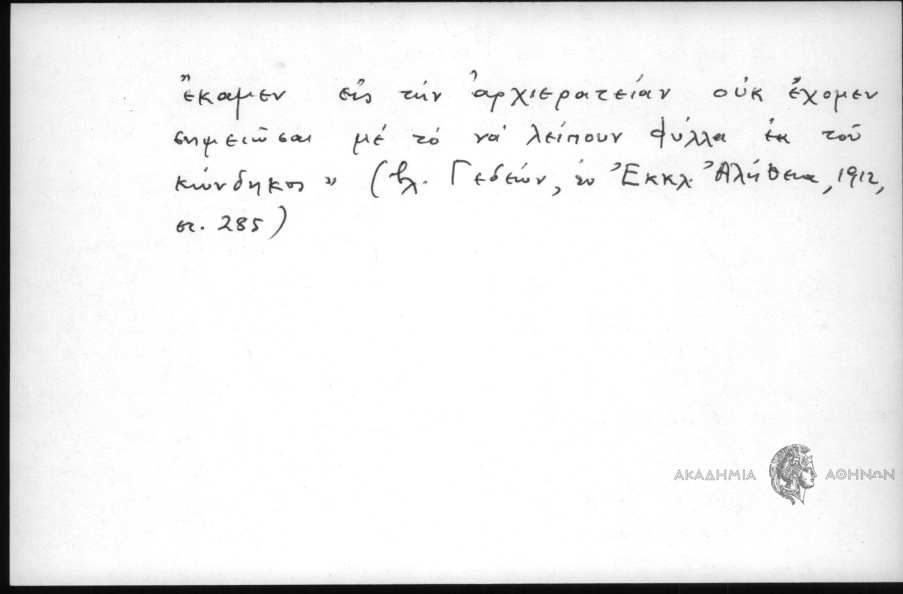 ἔκαμεν εἰς τὴν ἀρχιερατείαν οὐκ ἔχομεν
σημειῶσαι μέ τό νά λείπουν φύλλα ἐκ τοῦ
κώνδηκος » (βλ. Γεδεών, ἐν Ἐκκλ Ἀλήθεια, 1912,
σε. 285)
ΑΚΑΔΗΜΙΑ ΑΘΗΝΩΝ